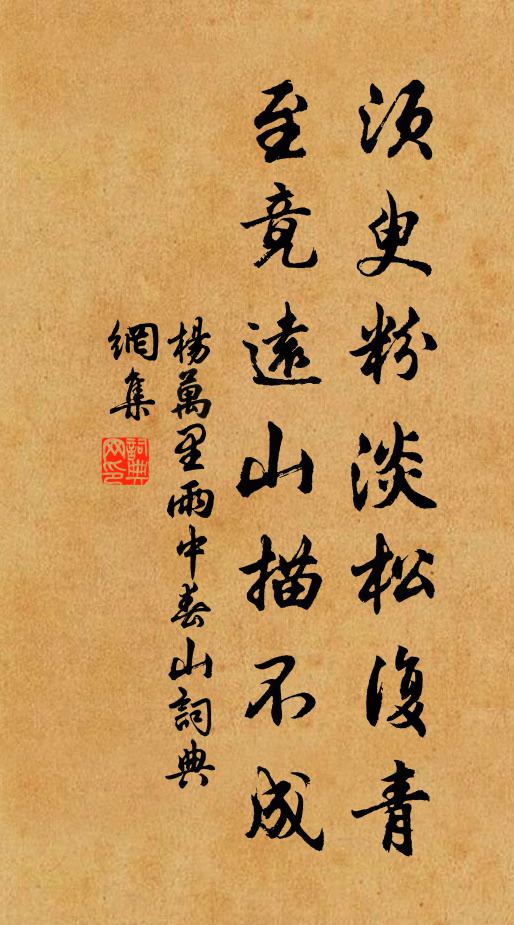 須臾粉淡松復青
至竟遠山描不成
楊萬里雨中春山詞典
網集
詞典
网印